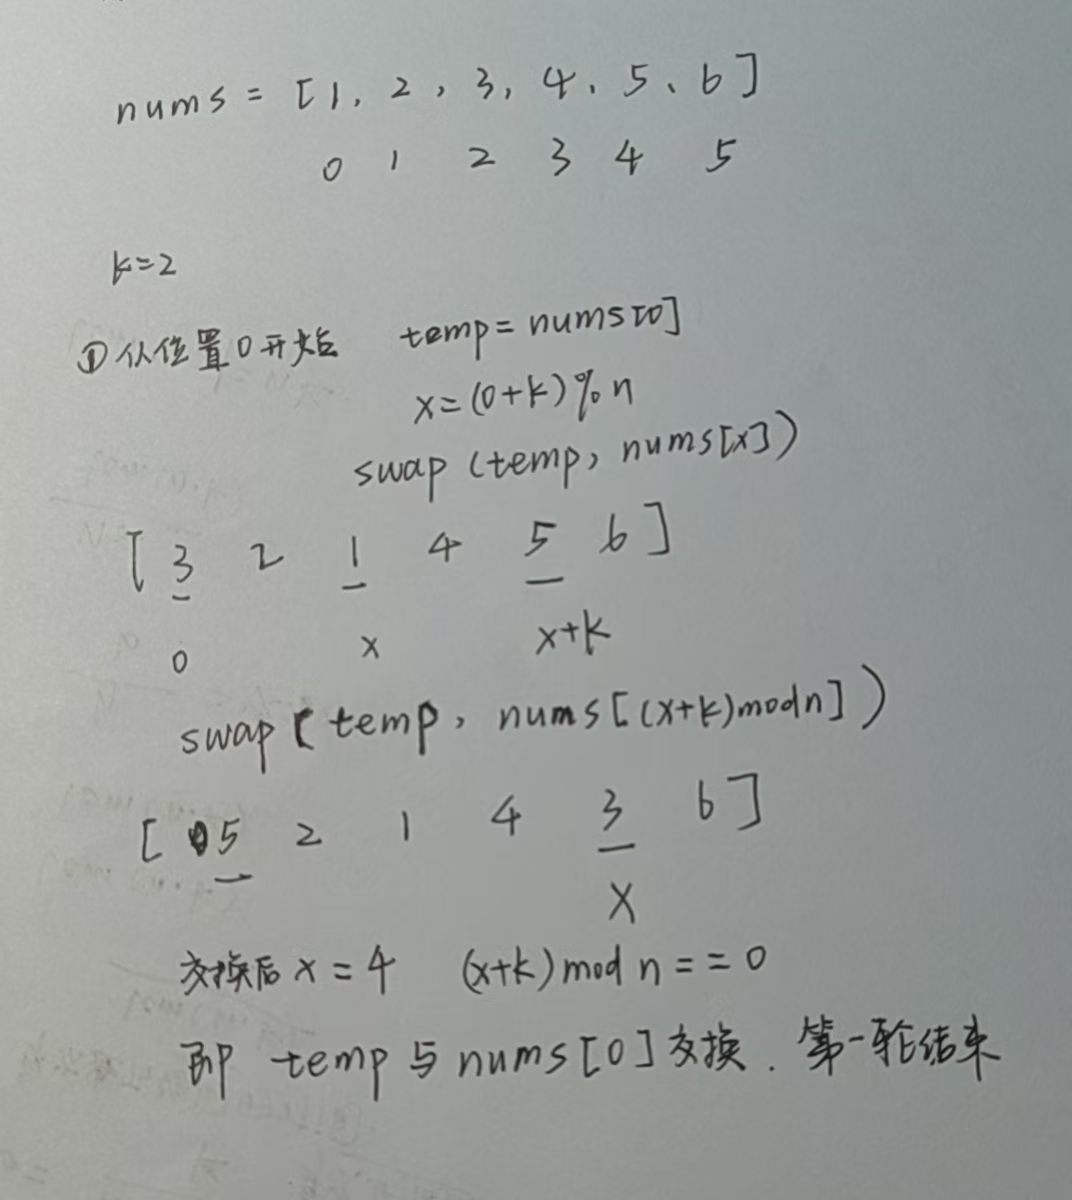 nums = [1, 2, 3, 4、5、6]
0 1 2 3 4 5
k=2
①从位置0开始 temp = nums[0]
x=(0+k)%n
swap (temp, nums[x])
[3 2 1 4 5 6]
0 x x+k
swap(temp, nums[(x+k)modn])
[5 2 1 4 3 6]
x
交换后x=4 (x+k)mod n == 0
即 temp与nums[0]交换. 第一轮结束